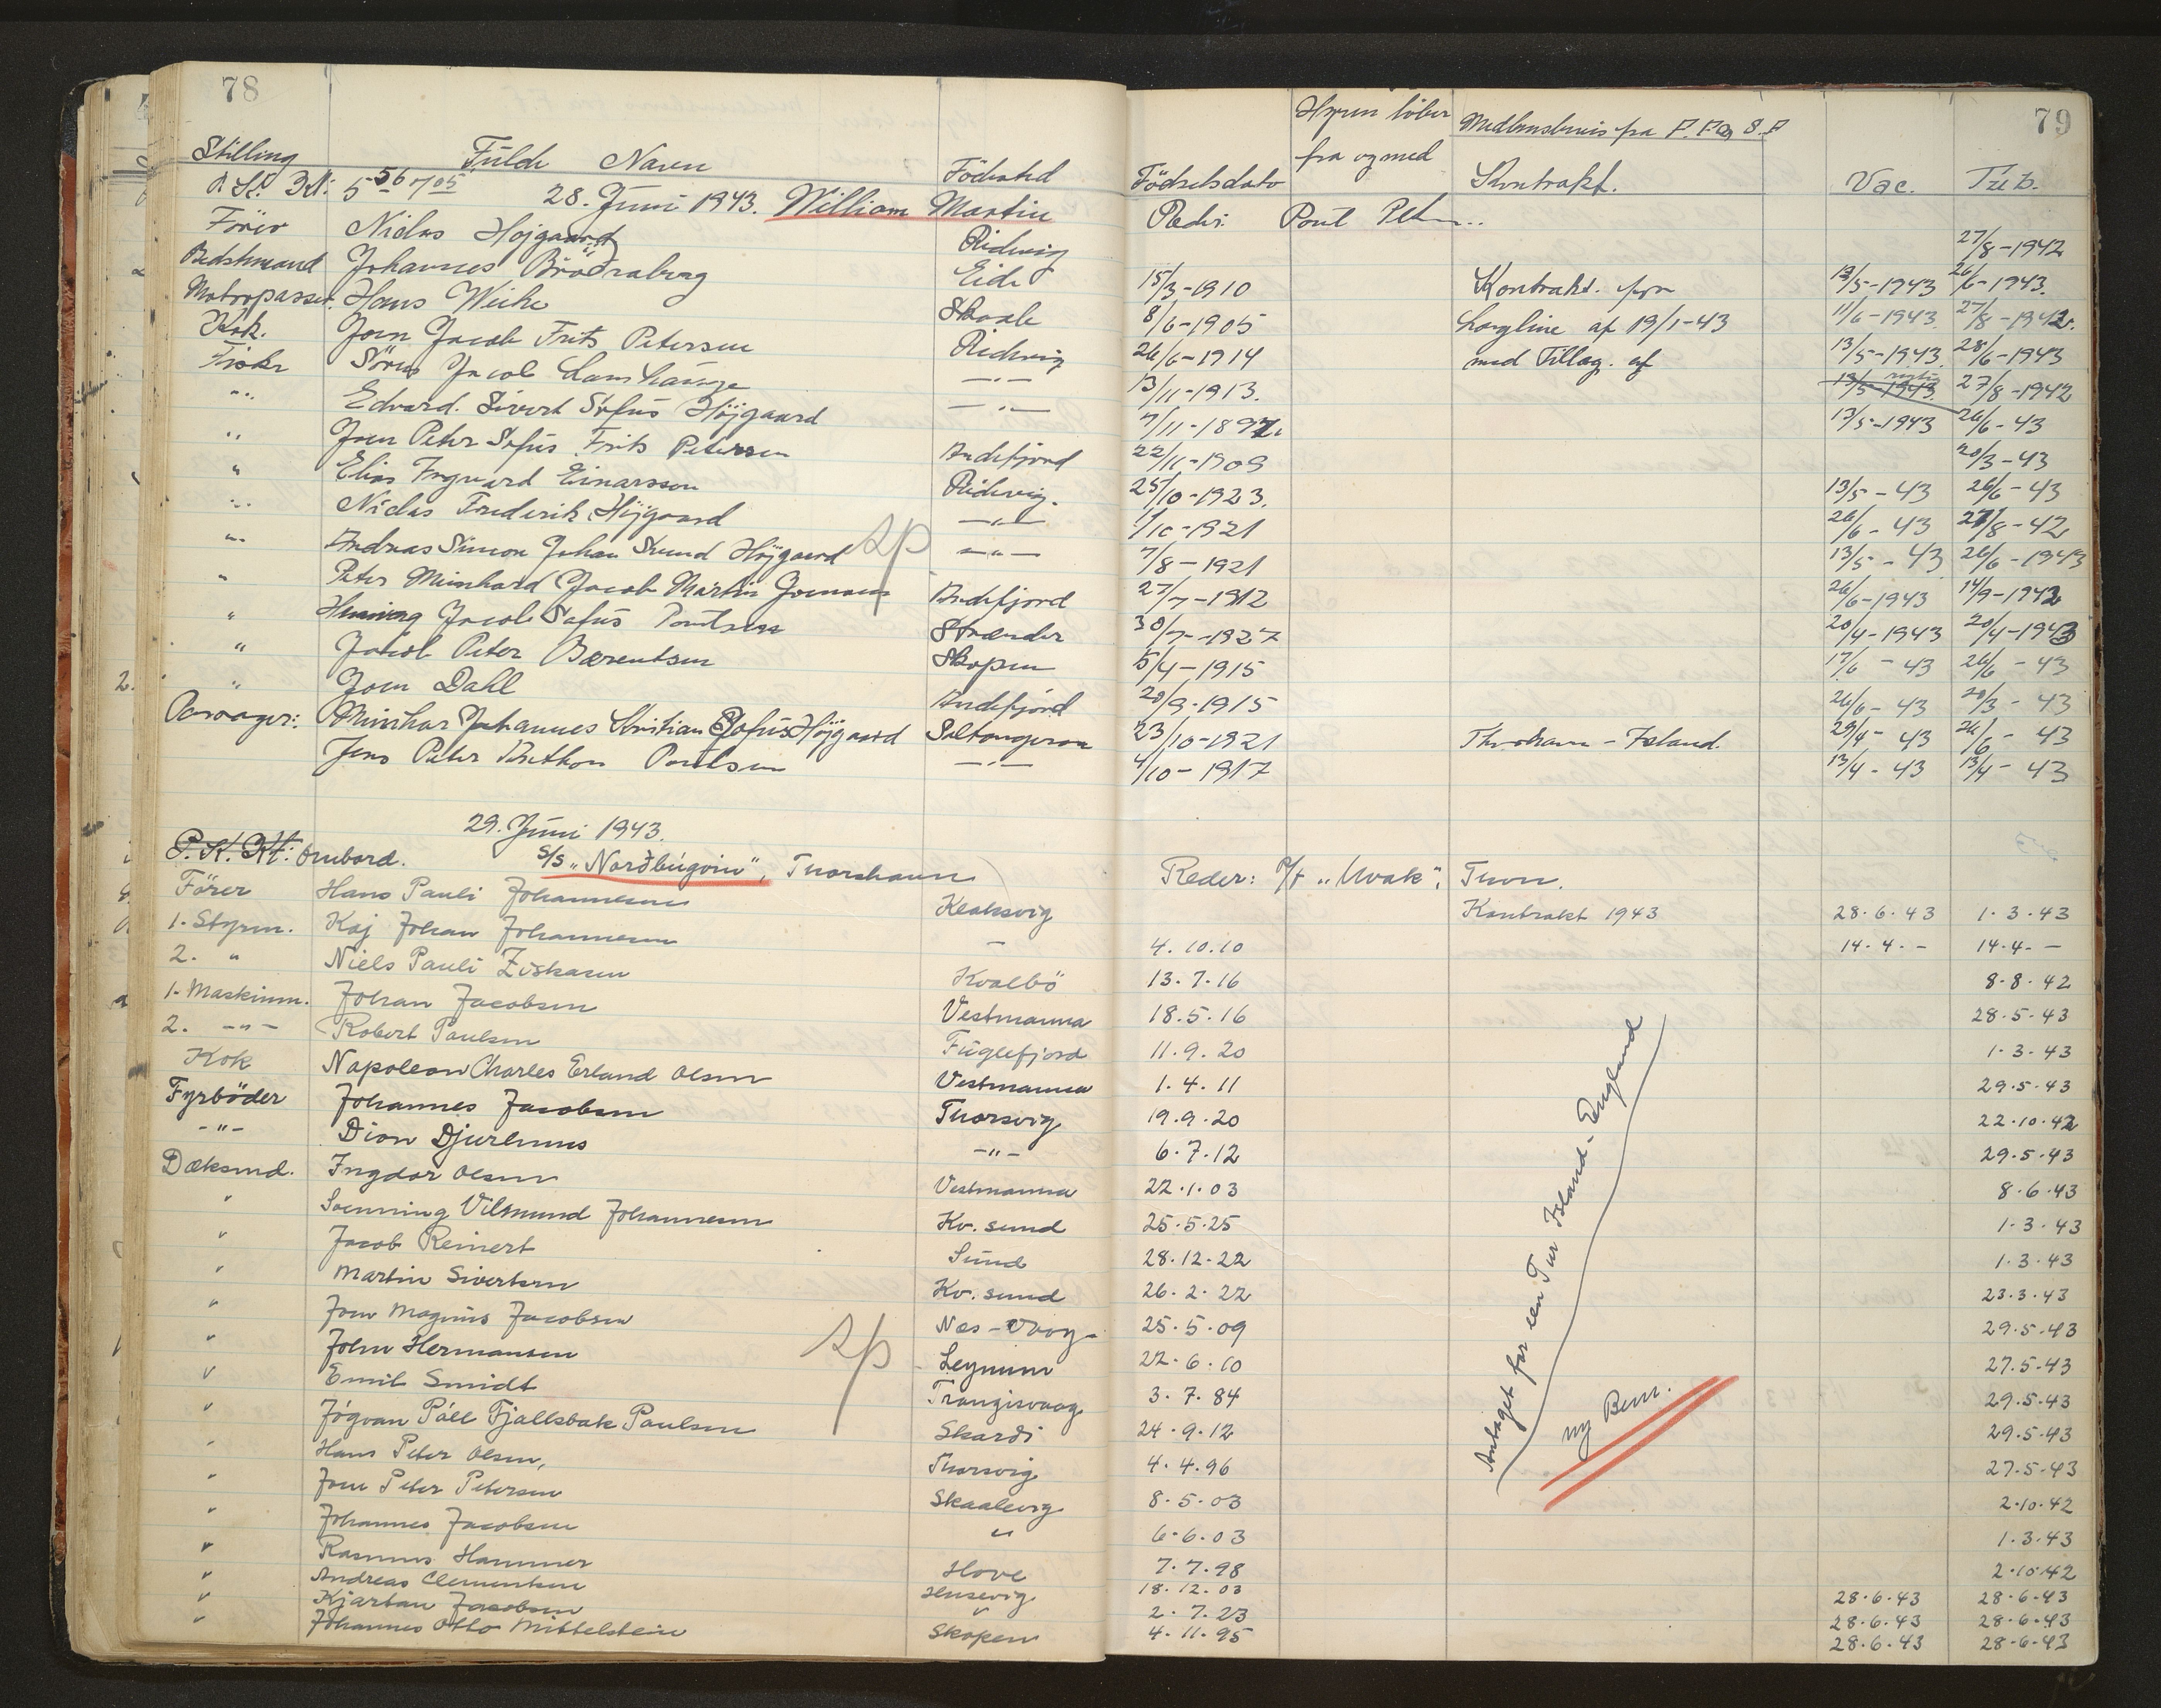 78
79
Stilling Fulde Navn Födested Födselsdato Hyren löber fra og med Medlemsbevis fra F. F. og S. F Kontrakt. Vac. Tub.
28. Juni 1943. William Martin Reder: Poul
Förer Niclas Hojgaard Ridevig 27/8-1942
Bedstmand Johannes Eide 15/3-1910 Kontrakt. 13/5-1943 26/6-1943.
Motorpasser. Hans Weihe Skaale 8/6-1905 Longline af 19/1-43 11/6-1943. 27/8-1942.
Kok. Joen Jacob Frits Petersen Ridevig 26/6-1914 med Tillæg. af 13/5-1943. 28/6-1943
Fisker Sören Jacob Lamhauge —"— 13/11-1913. 13/5-1943. 27/8-1942
"" Edvard. Sivert Sofus Höjgaard —"— 7/11-1897. 13/5-1943 26/6-43
"" Joen Peter Sofus Frits Petersen Andefjord 22/11-1909 20/3-43
" Elias Ingvard Einarsson Ridevig. 25/10-1923. 13/5-43 26/6-43
"" Niclas Frederik Höjgaard —"— 1/10-1921 26/6-43 27/8-42
"" Andreas Simon Johan Höjgaard —"— 7/8-1921 13/5-43 26/6-1943
" Peter Meinhard Jacob Martin Joensen Andefjord 27/7-1912 26/6-1943 14/9-1942
" Henning Jacob Sofus Poulsen Strænder 30/7-1927 20/4-1943 20/4-1943
" Jakob Peter Berentsen Skopen 5/4-1915 17/6-43 26/6-43
" Joen Dahl Andefjord 20/9-1915 26/6-43 20/3-43
Passager: Johannes Kristian Sofus Höjgaard Saltangeraa 23/10-1921 Thorshavn-Island. 29/4-43 26/6-43
Jens Peter Poulsen —"— 4/10-1917 13/4-43 13/4-43
29. Juni 1943.
P. K. Kl: Ombord. S/S "Norðbúgvin", Thorshavn Reder: P/F "Uvak", Tvon.
Förer Hans Pauli Johannesen Klaksvig Kontrakt 1943 28.6.43 1.3.43
1. Styrm. Kaj Johan Johannesen — 4.10.10 14.4.- 14.4.-
2. " Niels Pauli Ziskasen Kvalbö 13.7.16 8.8.42
1. Maskinm. Johan Jacobsen Vestmanna 18.5.16 28.5.43
2. -"- Robert Paulsen Fuglefjord 11.9.20 1.3.43
Kok Napoleon Charles Erland Olsen Vestmanna 1.4.11 29.5.43
Fyrböder Johannes Jacobsen Thorsvig 19.9.20 22.10.42
-"- Dion Djurhuus -"- 6.7.12 29.5.43
Dæksmd. Ingdor Olsen Vestmanna 22.1.03 8.6.43
" Soenning Vilmund Johannesen Kv. sund 25.5.25 1.3.43
" Jacob Reinert Sund 28.12.22 1.3.43
" Martin Sivertsen Kv. sund 26.2.22 23.3.43
" Joen Magnus Jacobsen Nes-Vaag 25.5.09 29.5.43
" John Hermansen Leynum 22.6.10 27.5.43
" Emil Smidt Trangisvaag 3.7.84 29.5.43
" Jógvan Páll Fjallsbak Paulsen Skardi 24.9.12 29.5.43
" Hans Peter Olsen, Thorsvig 4.4.96 27.5.43
" Joen Peter Petersen Skaalevig 8.5.03 2.10.42
" Johannes Jacobsen " 6.6.03 1.3.43
" Rasmus Hammer Hove 7.7.98 2.10.42
" Andreas Clementsen Husevig 18.12.03 28.6.43 28.6.43
" Kjartan Jacobsen " 2.7.23 28.6.43 28.6.43
" Johannes Otto Mittelstein Skopen 4.11.95 28.6.43 28.6.43
Antaget for een Tur Island-England
ny Bem.